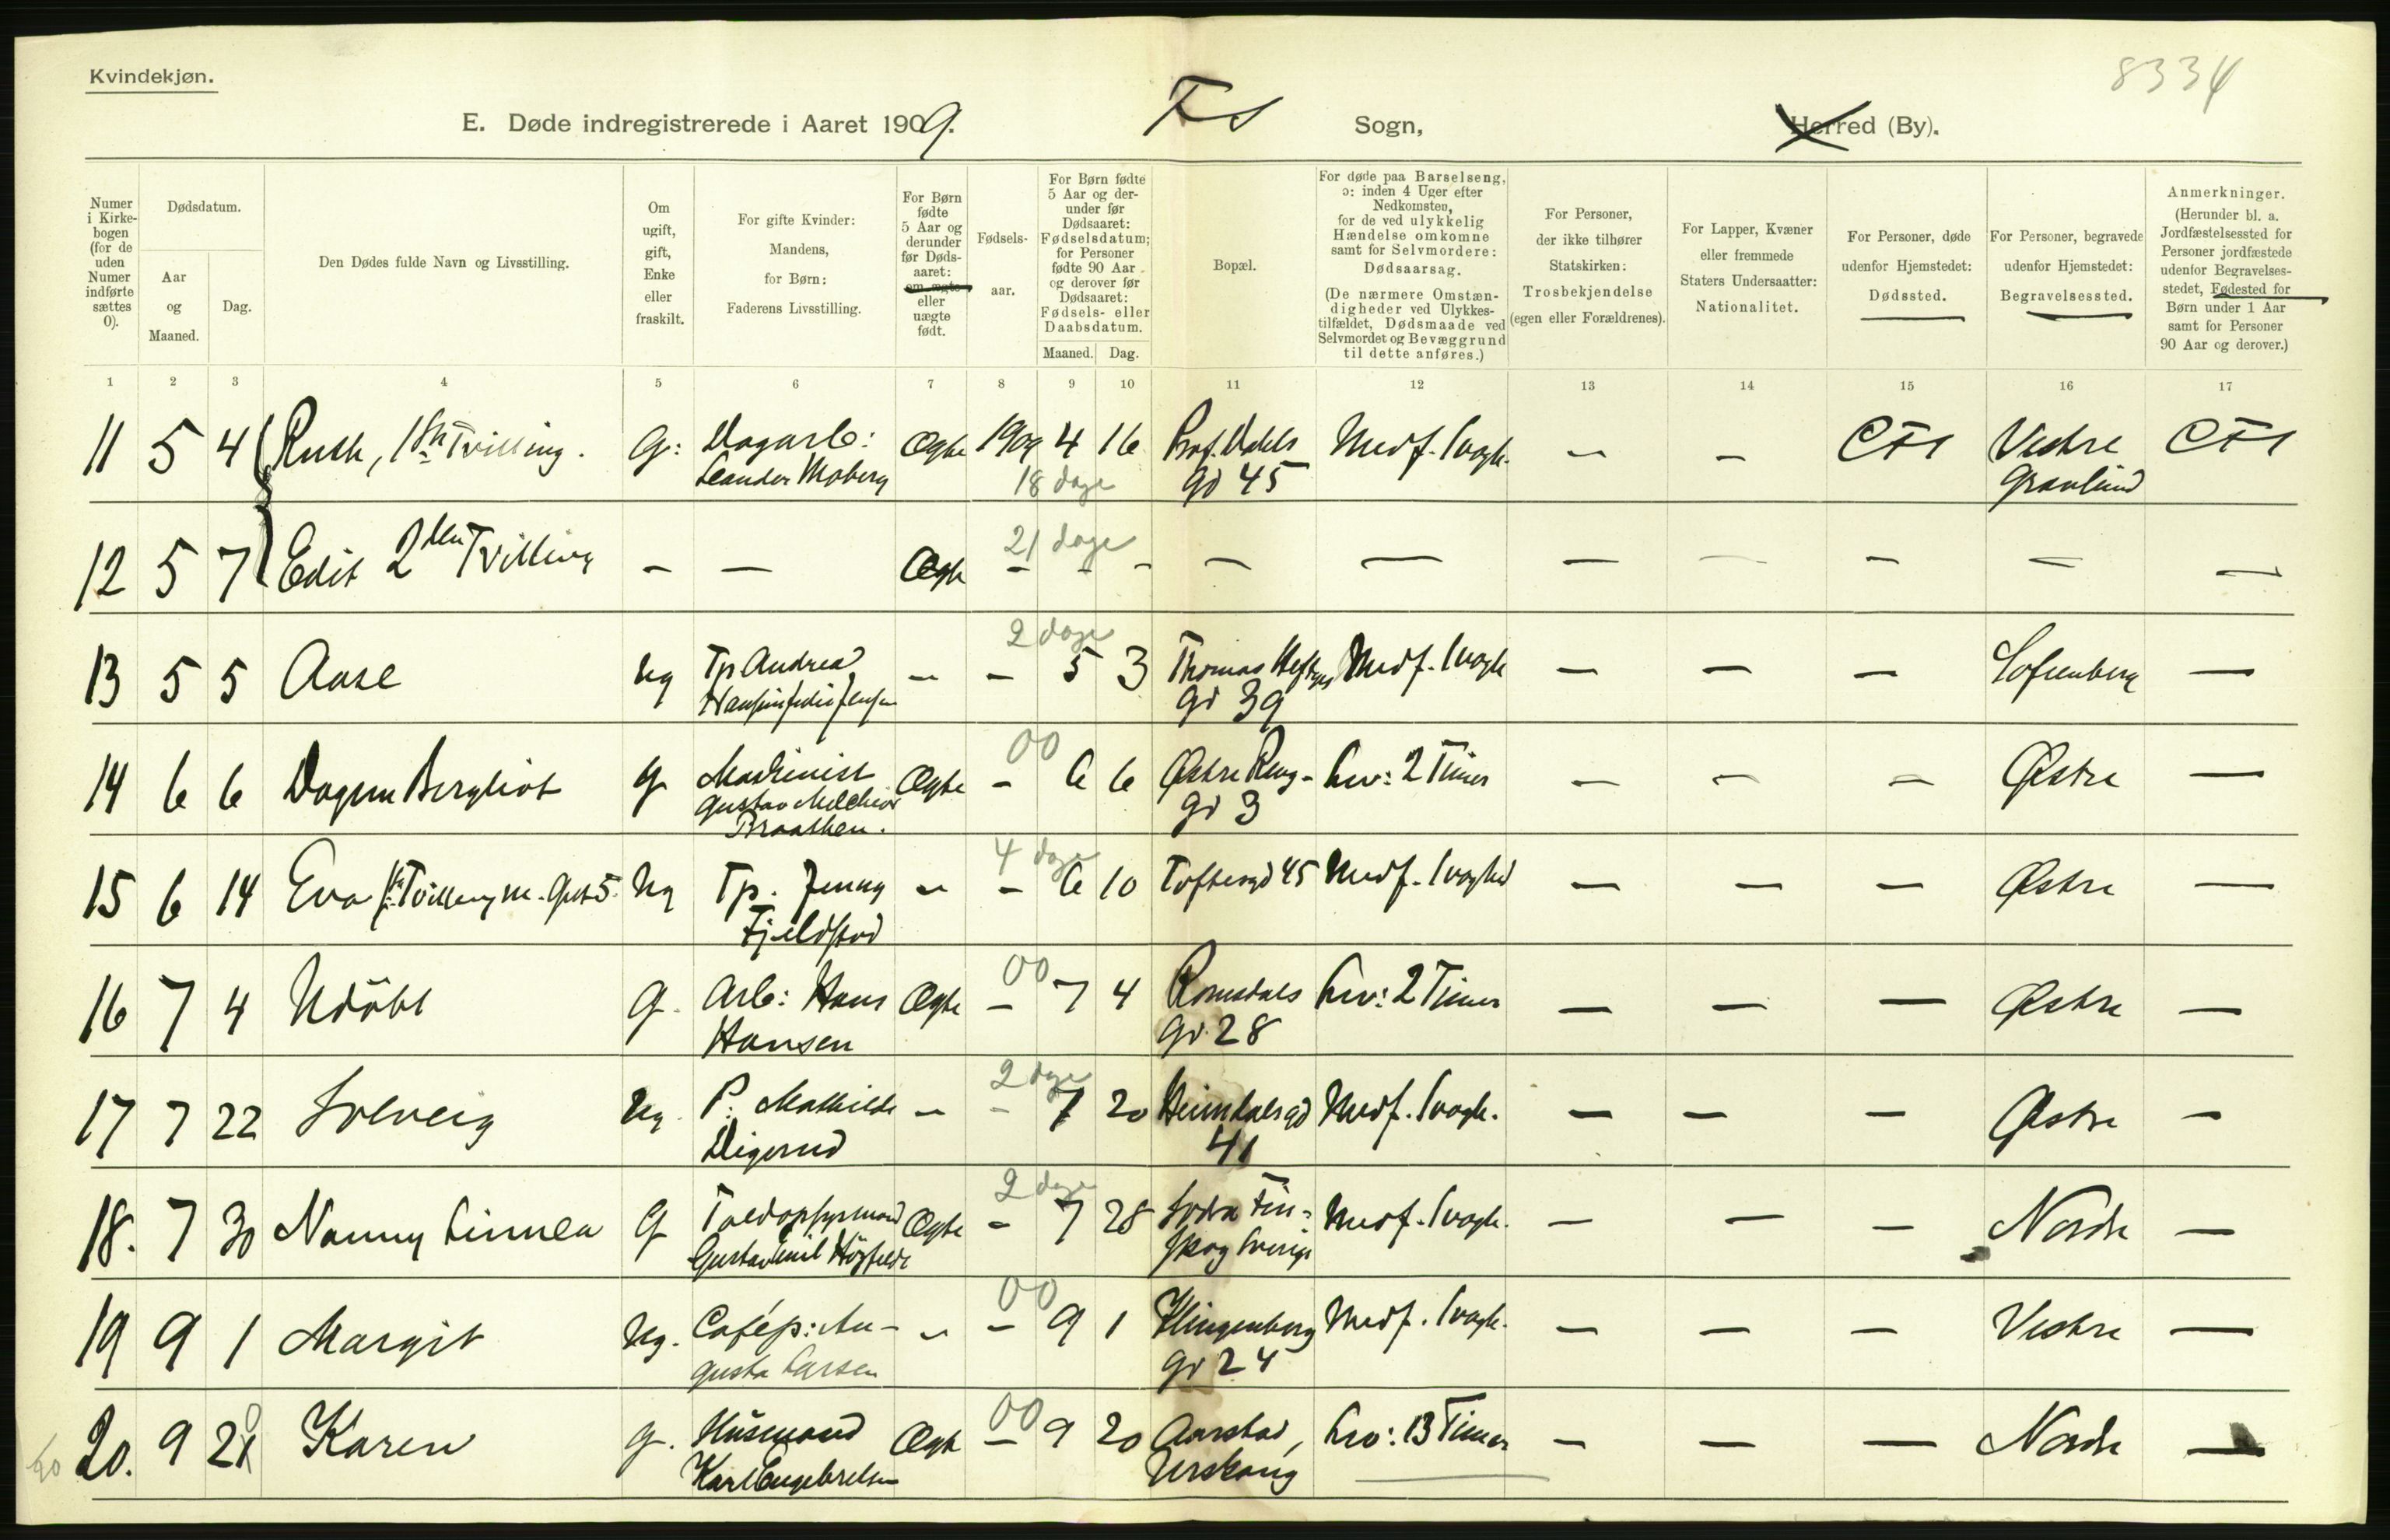 Kvindekjøn.
8334
E. Døde indregistrerede i Aaret 1909. FS Sogn, Herred (By).
Numer i Kirkebogen (for de uden Numer indførte sættes 0).
Dødsdatum.
Aar og Maaned.
Dag.
Den Dødes fulde Navn og Livsstilling.
Om ugift, gift, Enke eller fraskilt.
For gifte Kvinder: Mandens, for Børn: Faderens Livsstilling.
For Børn fødte 5 Aar og derunder før Dødsaaret: om ægte eller uægte født.
Fødselsaar.
For Børn fødte 5 Aar og derunder før Dødsaaret: Fødselsdatum; for Personer fødte 90 Aar og derover før Dødsaaret: Fødsels- eller Daabsdatum.
Maaned. Dag.
Bopæl.
For døde paa Barselseng, ɔ: inden 4 Uger efter Nedkomsten, for de ved ulykkelig Hændelse omkomne samt for Selvmordere: Dødsaarsag.
(De nærmere Omstændigheder ved Ulykkestilfældet, Dødsmaade ved Selvmordet og Bevæggrund til dette anføres.)
For Personer, der ikke tilhører Statskirken: Trosbekjendelse (egen eller Forældrenes).
For Lapper, Kvæner eller fremmede Staters Undersaatter: Nationalitet.
For Personer, døde udenfor Hjemstedet: Dødssted.
For Personer, begravede udenfor Hjemstedet: Begravelsessted.
Anmerkninger.
(Herunder bl. a. Jordfæstelsessted for Personer jordfæstede udenfor Begravelsesstedet, Fødested for Børn under 1 Aar samt for Personer 90 Aar og derover.)
1 2 3 4 5 6 7 8 9 10 11 12 13 14 15 16 17
11 5 4 Ruth, 1ste Tvilling. G: Dagarb: Ægte 1909 4 16 Prof. Dahls Medf. Svagh. - - CFS Vestre CFS
Leander Moberg 18 dage gd 45 Gravlund
12 5 7 Edit 2den Tvilling - - Ægte 21 dage - - - - - - - - - -
2 dage
13 5 5 Aase Ug Tp Andrea - - 5 3 Thomas Heftyes Medf. Svagh - - - Sofienberg -
gd 39
00
14 6 6 Dagny Bergliot G Maskinist Ægte - 6 6 Østre Reng- Lev: 2 Timer - - - Østre -
Gustav Melchior gd 3
Braathen.
4 dage
15 6 14 Eva 1ste Tvilling m. Gut 5. Ug Tp. Jenny - - 6 10 Toftesgd 45 Medf. Svaghed - - - Østre -
Fjeldstad
00
16 7 4 Udöbt G. Arb: Hans Ægte - 7 4 Romsdals Lev: 2 Timer - - - Østre -
Hansen gd. 28
2 dage
17 7 22 Solveig Ug. P: Mathilde - - 7 20 Heimdalsgd Medf. Svagh. - - - Østre -
Digerud 41
2 dage
18. 7 30 Nanny Linnea G Toldopsynsmand Ægte - 7 28 Södra Fin- Medf. Svagh. - - - Nordre -
Gustav Emil Högfeldt skog Sverige
00
19 9 1 Margit Ug. Cafép: Au- - - 9 1 Klingenberg Medf. Svagh. - - - Vestre -
gusta Larsen gd 24
00
20. 9 20 Karen G. Husmand Ægte - 9 20 Aarstad, Lev: 13 Timer - - - Nordre -
Karl Engebretsen Urskoug